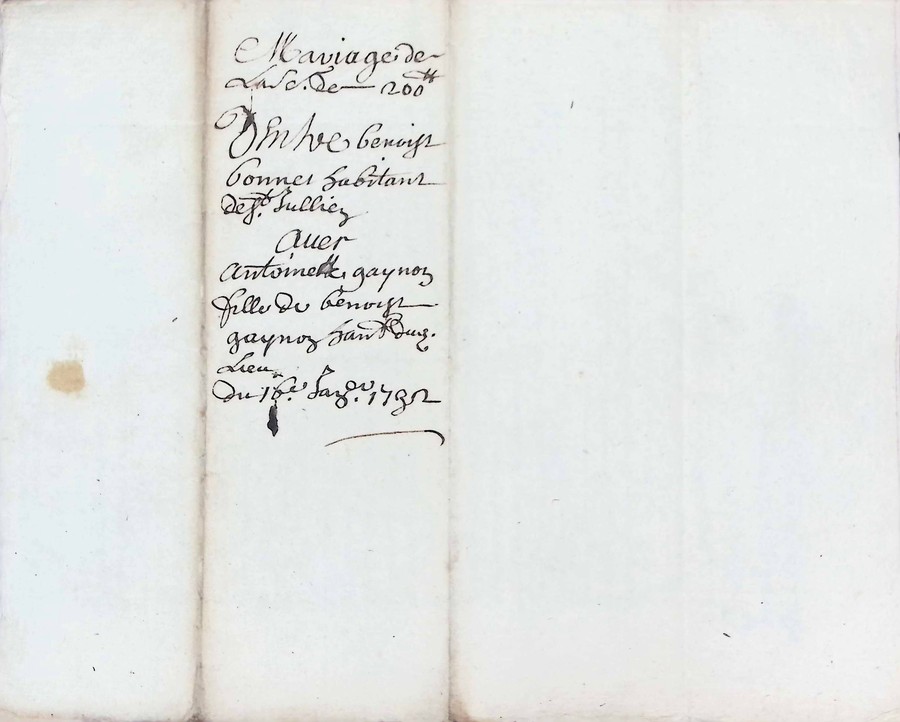 Mariage de
La Sc. de 200tt
Entre benoist
bonnet habitant
de St. Jullien
Avec
Antoinette gaynon
fille de benoist
gaynon hant. dud.
Lieu
du 16e. Janv.er 1732